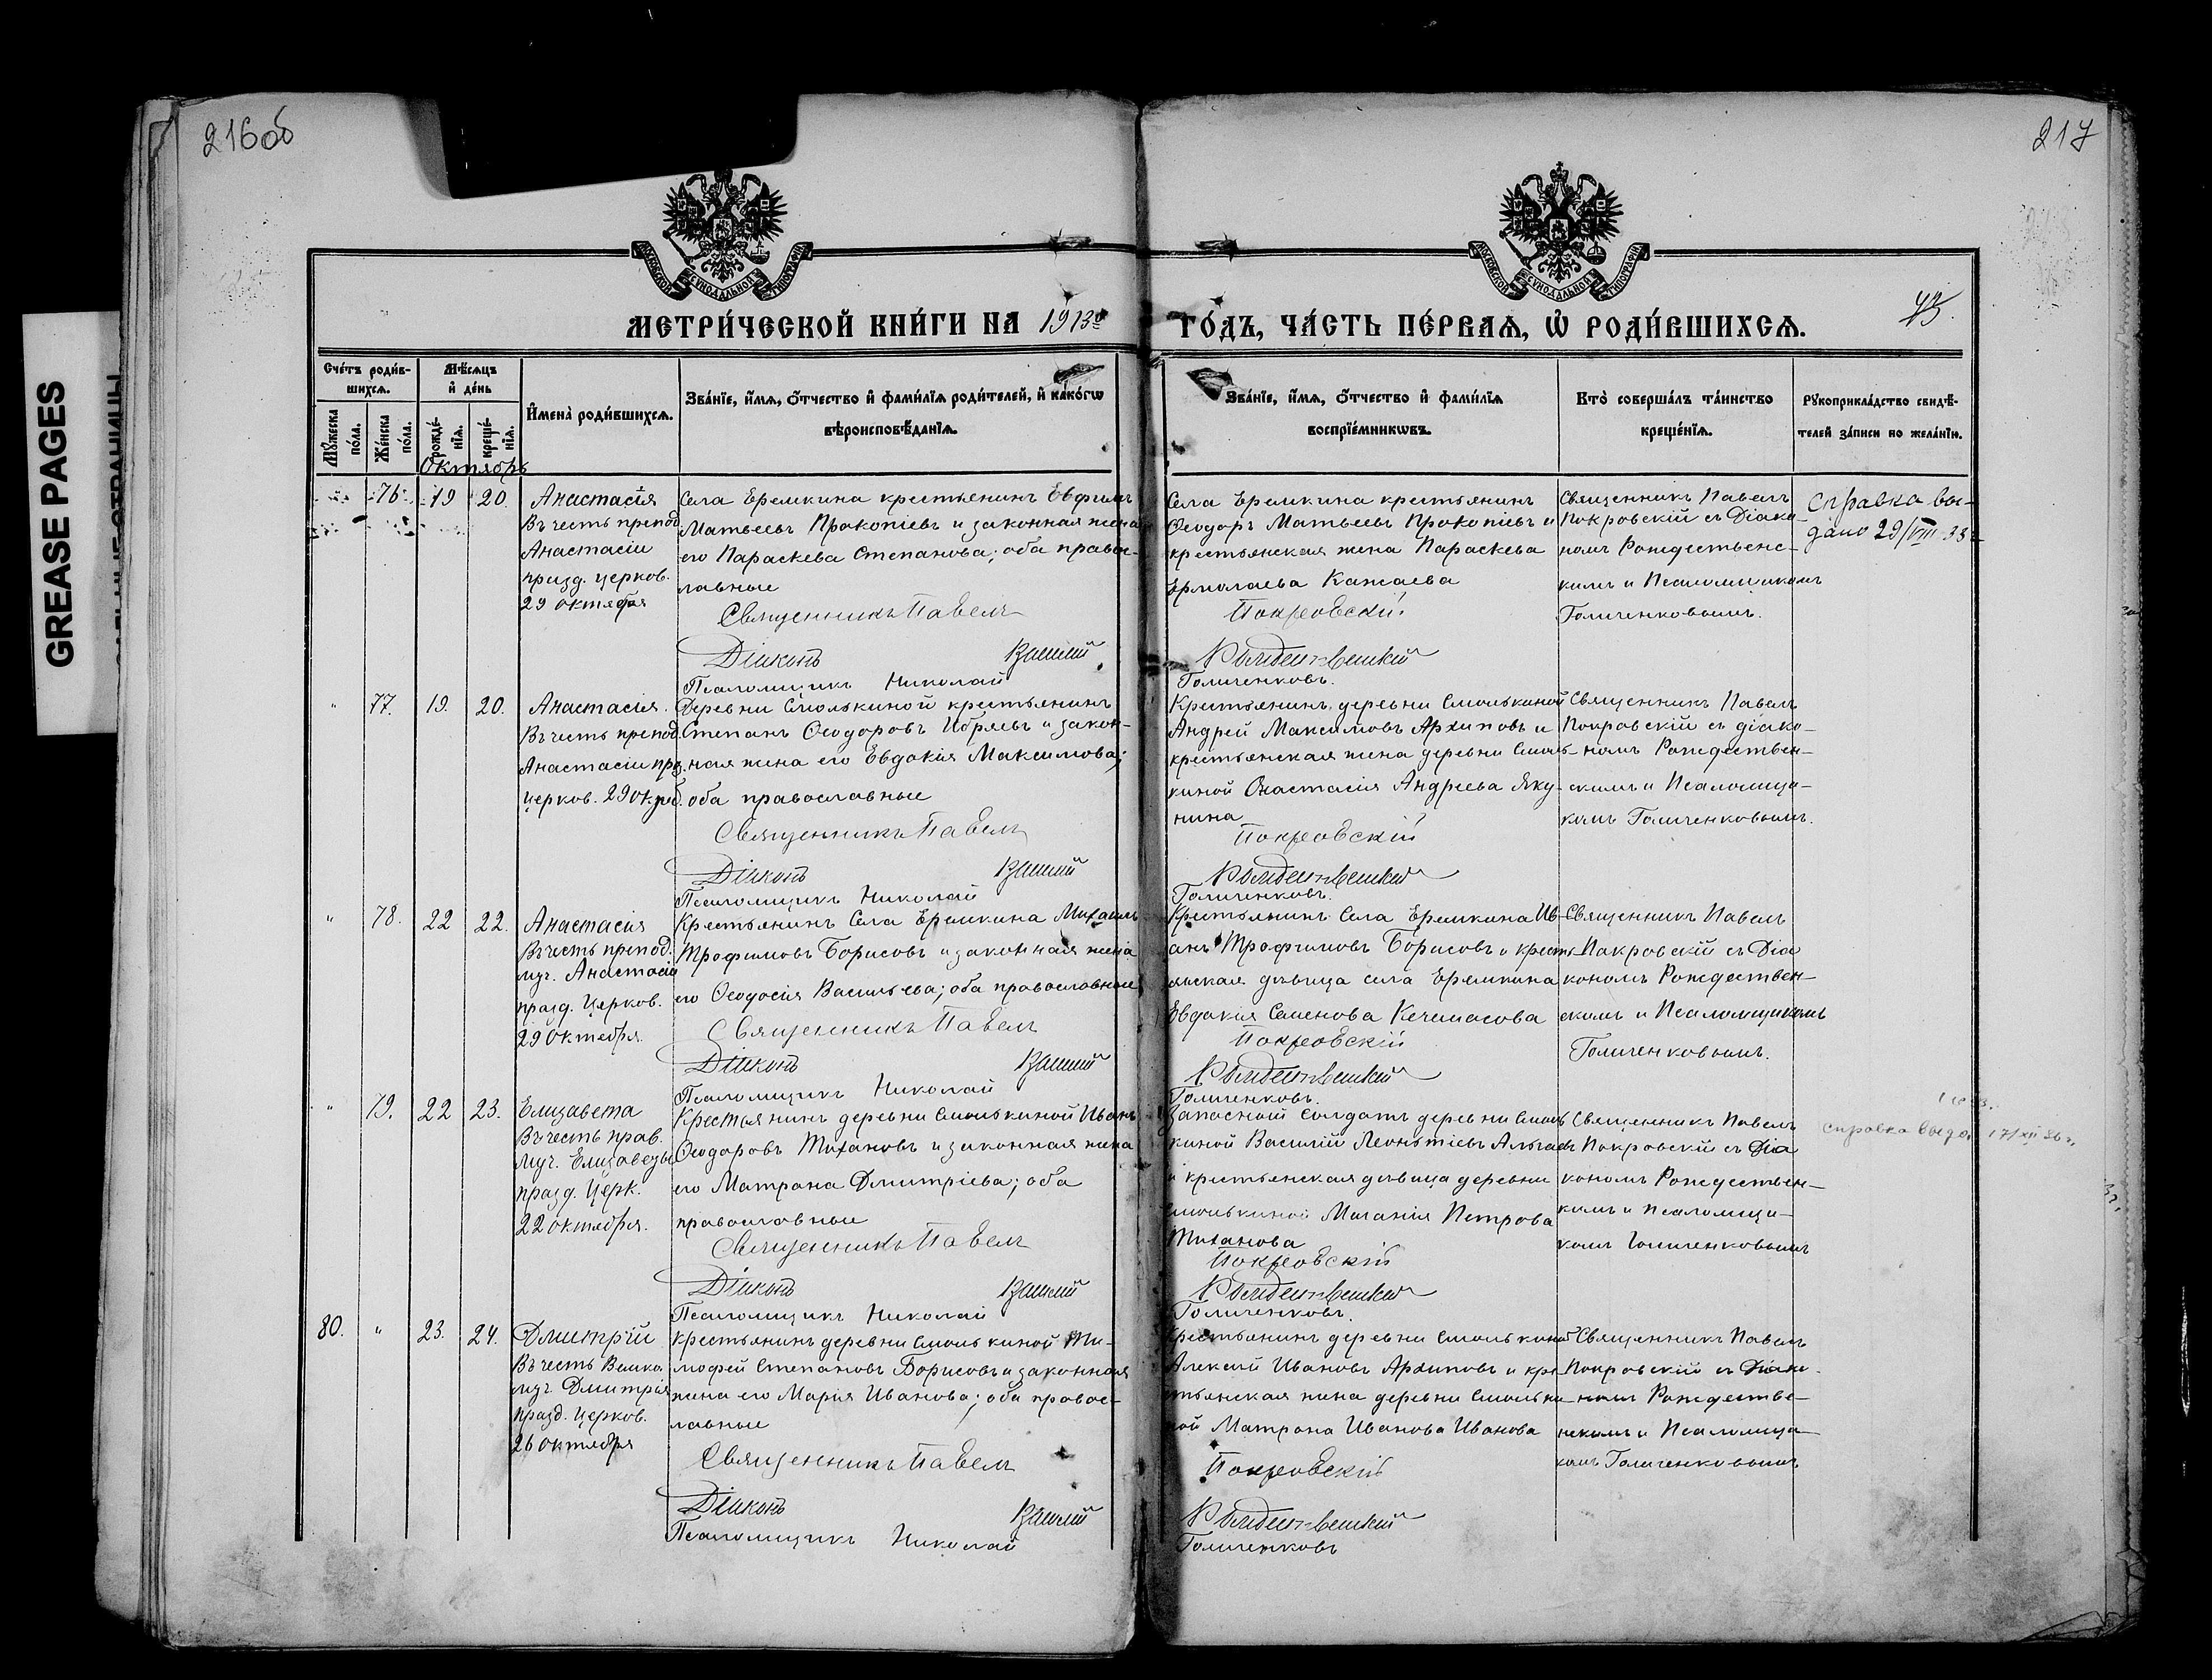 216об
217
GREASE PAGES
МОСКОВСКОЙ СѴНОДАЛЬНОЙ ТИПОГРАФІИ
МОСКОВСКОЙ СѴНОДАЛЬНОЙ ТИПОГРАФІИ
МЕТРИ́ЧЕСКОЙ КНИ́ГИ НА 1913й ГО́ДЪ, ЧА́СТЬ ПЕ́РВАѦ, Ѡ҆ РОДИ́ВШИХСѦ.
43.
Сче́тъ роди́в-
шихсѧ.
Мꙋ́жеска по́ла.
Же́нска по́ла.
Мѣ́сѧцъ
и҆ де́нь
рожде́-
нїѧ.
креще́-
нїѧ.
Октябрь
И҆мена̀ роди́вшихсѧ.
Зва́нїе, и҆́мѧ, ѻ҆́тчество и҆ фами́лїѧ роди́телей, и҆ како́гѡ
вѣроисповѣ́данїѧ.
Зва́нїе, и҆́мѧ, ѻ҆́тчество и҆ фами́лїѧ
воспрїе́мникѡвъ.
Кто̀ соверша́лъ та́инство
креще́нїѧ.
Рꙋкоприкла́дство свидѣ́-
телей за́писи по жела́нїю.
76. 19 20.
Анастасія
Въ честь препод.
Анастасіи
празд. церков.
29 октября
Села Еремкина крестьянинъ Евфимъ
Матвеевъ Прокопіевъ и законная жена
его Параскева Степанова; оба право-
лавные
Священникъ Павелъ
Діаконъ Василій
Псаломщикъ Николай
Села Еремкина крестьянинъ
Ѳеодоръ Матвеевъ Прокопіевъ и
крестьянская жена Параскева
Ермолаева Кажаева
Покровскій
Рождественскій
Голиченковъ.
Священникъ Павелъ
Покровскій съ Діако-
номъ Рождественс-
кимъ и Псаломщикомъ
Голиченковымъ.
Справка вы-
дано 29/VIII 33 г.
" 77. 19. 20.
Анастасія.
Въ честь препод.
Анастасіи праз.
церков. 29 Октяб.
Деревни Смолькиной крестьянинъ
Степанъ Ѳеодоровъ Ибряевъ и закон-
ная жена его Евдокія Максимова;
оба православные
Священникъ Павелъ
Діаконъ Василій
Псаломщикъ Николай
Крестьянинъ деревни Смолькиной
Андрей Максимовъ Архиповъ и
крестьянская жена деревни Смоль-
киной Анастасія Андреева Яку-
нина
Покровскій
Рождественскій
Голиченковъ.
Священникъ Павелъ
Покровскій съ діако-
номъ Рождествен-
скимъ и Псаломщи-
комъ Голиченковымъ.
" 78. 22 22.
Анастасія
Въ честь препод.
муч. Анастасіи
празд. Церков.
29 Октября.
Крестьянинъ Села Еремкина Михаилъ
Трофимовъ Борисовъ и законная жена
его Ѳеодосія Васильева; оба православные
Священникъ Павелъ
Діаконъ Василій
Псаломщикъ Николай
Крестьянинъ Села Еремкина Ив-
анъ Трофимовъ Борисовъ и кресть-
янская дѣвица села Еремкина
Евдокія Семенова Кечемасова
Покровскій
Рождественскій
Голиченковъ.
Священникъ Павелъ
Покровскій съ Діа
кономъ Рождествен-
скимъ и Псаломщикомъ
Голиченковымъ.
" 79. 22 23.
Елизавета
Въ честь прав.
муч. Елизаветы
празд. Церк.
22 октября.
Крестьянинъ деревни Смолькиной Иванъ
Ѳеодоровъ Тихановъ и законная жена
его Матрона Дмитріева; оба
православные
Священникъ Павелъ
Діаконъ Василій
Псаломщикъ Николай
Запасный Солдатъ деревни Смоль
киной Василій Леонтіевъ
и крестьянская дѣвица деревни
Смолькиной Меланія Петрова
Тиханова
Покровскій
Рождественскій
Голиченковъ.
Священникъ Павелъ
Покровскій съ Діа
кономъ Рождествен-
кимъ и псаломщи-
комъ Голиченковымъ
справка выдо. 17/XII 36 г.
80. " 23. 24.
Дмитрій
Въ честь Велико
муч. Дмитрія
празд. Церков.
26 октября
Крестьянинъ деревни Смолькиной Ти-
мофей Степановъ Борисовъ и законная
жена его Марія Иванова; оба правос-
лавные
Священникъ Павелъ
Діаконъ Василій
Псаломщикъ Николай
Крестьянинъ деревни Смолькиной
Алексѣй Ивановъ Архиповъ и кре-
стьянская жена деревни Смольки-
ной Матрона Иванова Иванова
Покровскій
Рождественскій
Голиченковъ
Священникъ Павелъ
Покровскій съ Діако-
номъ Рождестве-
нскимъ и Псаломщи-
комъ Голиченковымъ